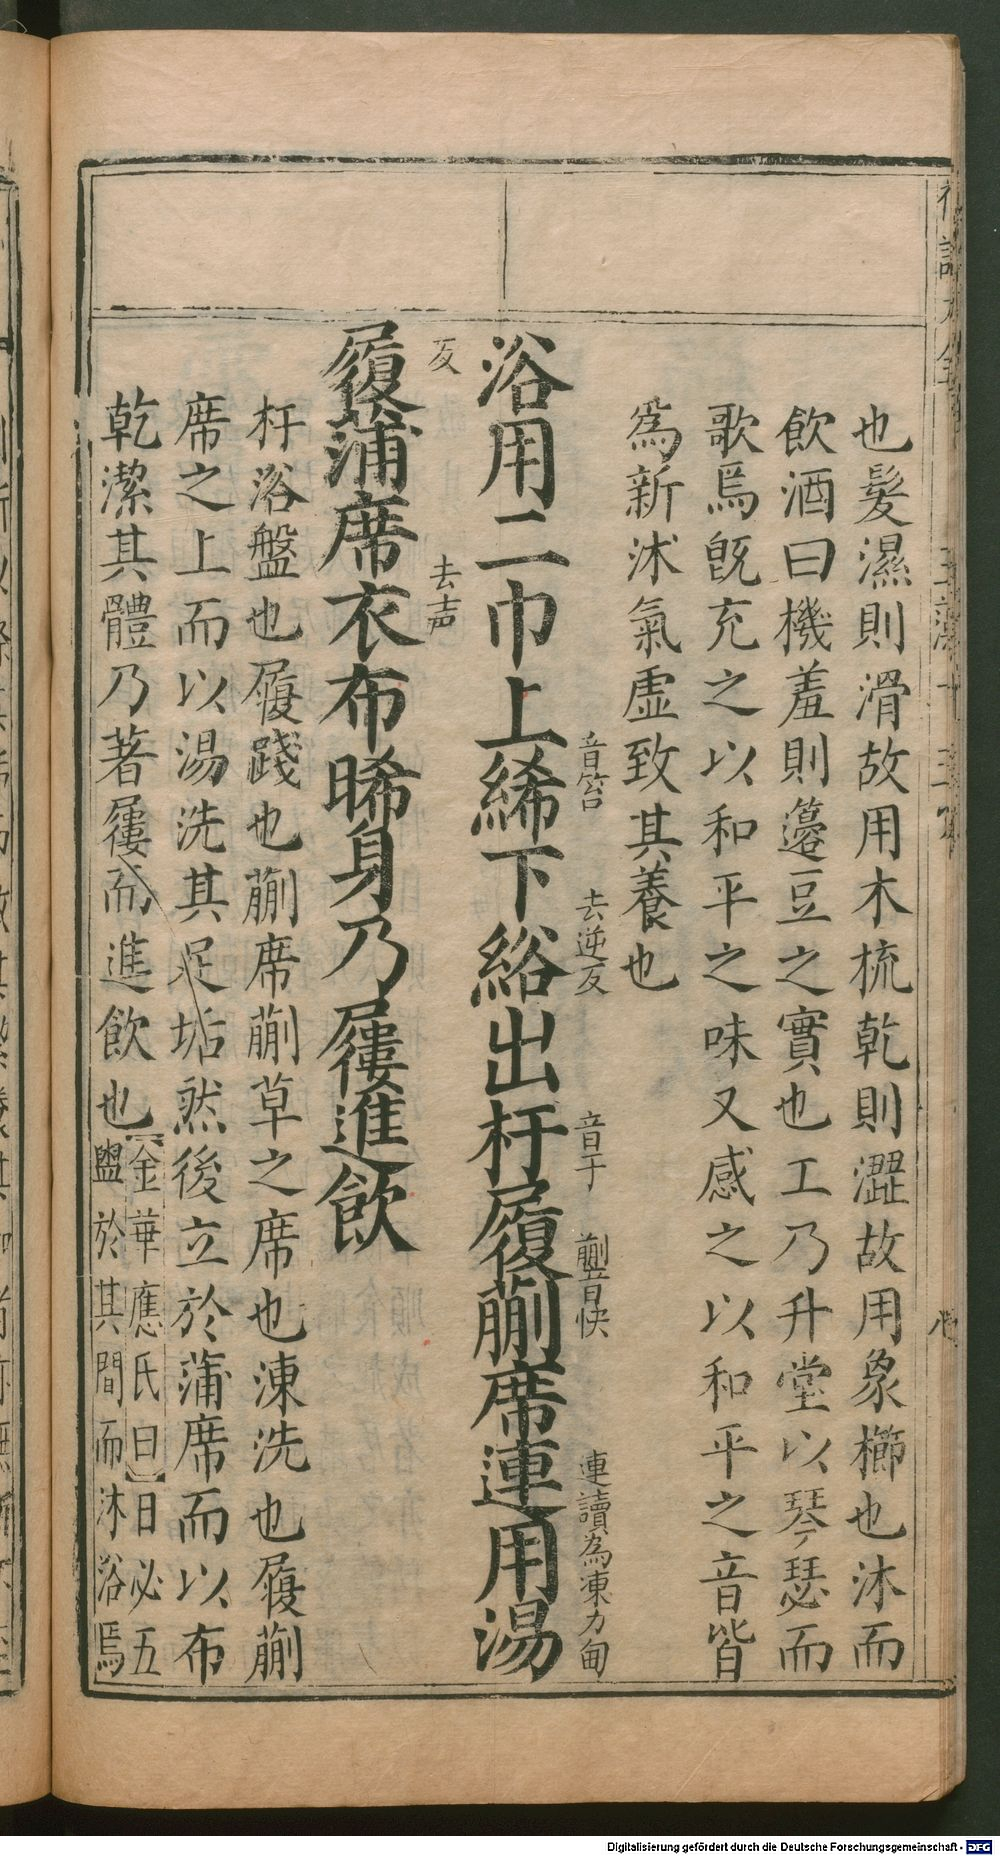 也髮濕則滑故用木梳乾則澀故用象櫛也沐而
飲酒曰機羞則籩豆之實也工乃升堂以琴瑟而
歌焉旣充之以和平之味又感之以和平之音皆
爲新沐氣虛致其養也
音笞
去逆反
音于
蒯音快
連讀為凍力甸
浴用二巾上絺下綌出杅履蒯席連用湯
反
去声
履蒲席衣布晞身乃屨進飲
杅浴盤也履踐也蒯席蒯草之席也凍洗也履蒯
席之上而以湯洗其足垢然後立於蒲席而以布
乾潔其體乃著屨而進飲也
【金華應氏曰】日必五
盥於其間而沐浴焉
Digitalisierung gefördert durch die Deutsche Forschungsgemeinschaft - DFG